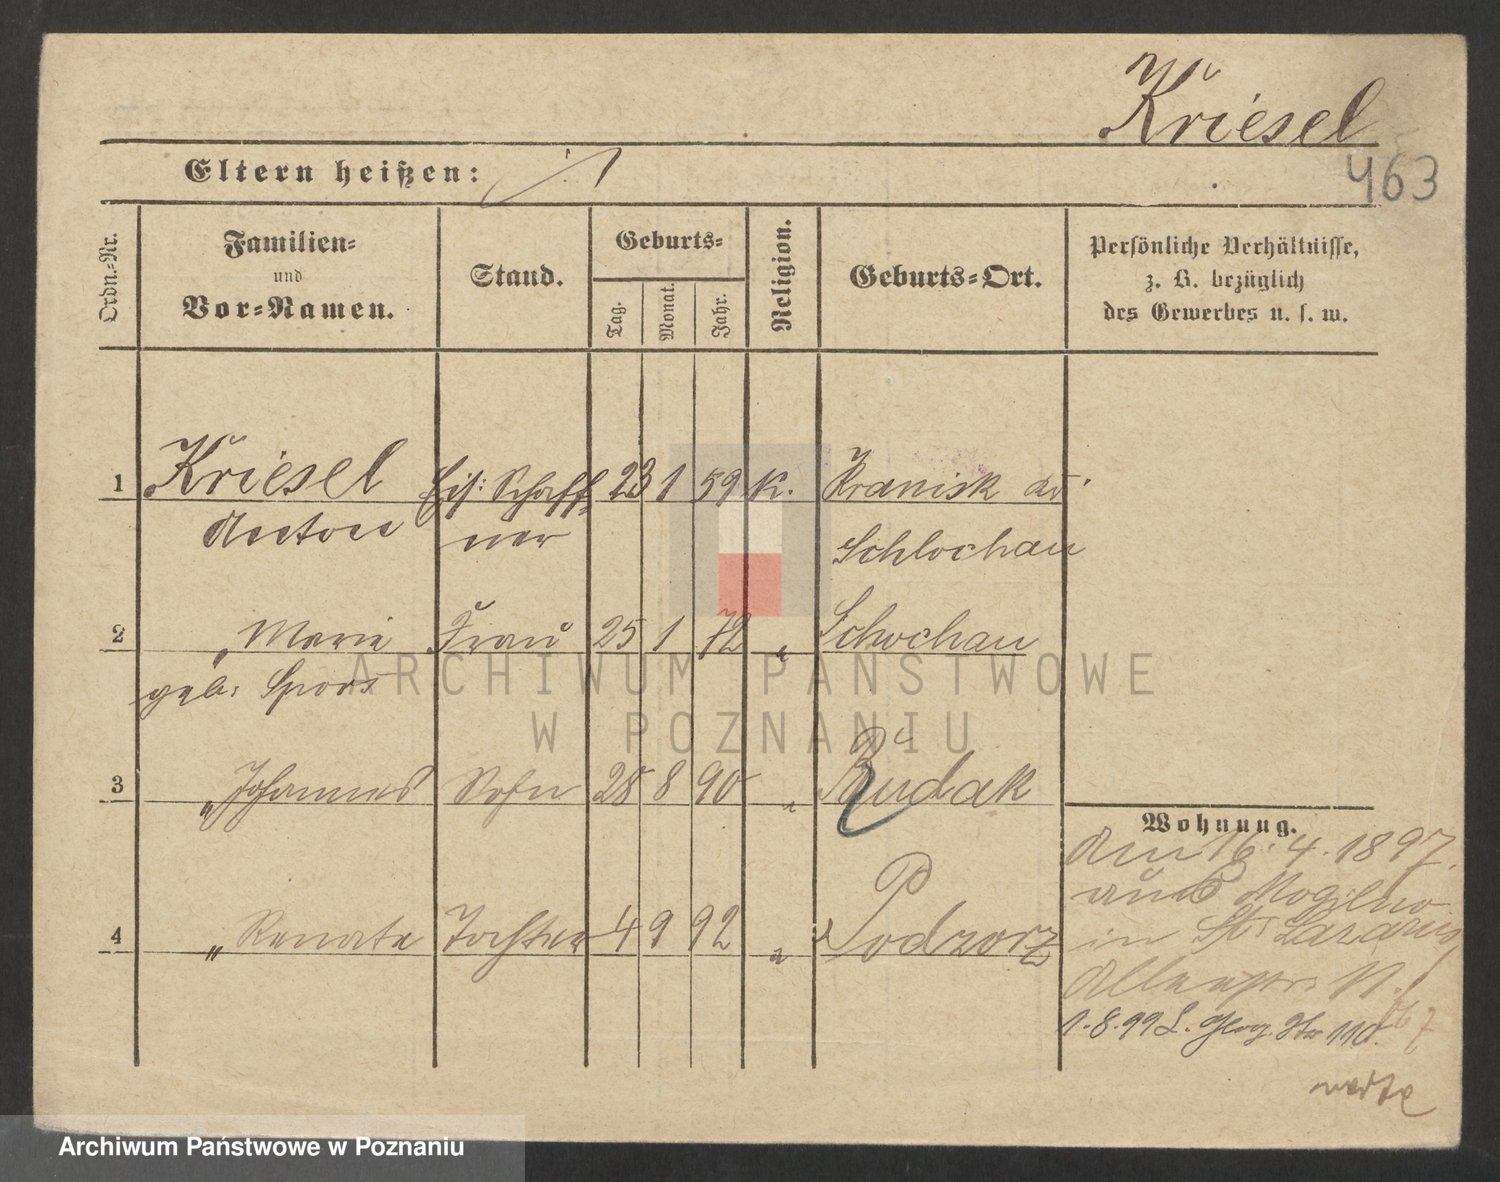 Kriesel
463
Eltern heißen:
Ordn.-Nr.
Familien-
und
Vor-Namen.
Stand.
Geburts-
Tag.
Monat.
Jahr.
Religion.
Geburts-Ort.
Persönliche Verhältnisse,
z. B. bezüglich
des Gewerbes u. s. w.
1 Kriesel Eis: Schaff- 23 1 59 K. Kranisk Kr
Anton ner Schlochau
2 " Marie Frau 25 1 72 " Schlochau
geb: Spors
3 " Johannes Sohn 28 8 90 " Rudak
4 " Renate Tochter 4 9 92 " Podzorz
Wohnung.
Am 16. 4. 1897.
aus Mogilno
in St. Lazarus
1.8.99 L. Glog. Str 110.
ARCHIWUM PAŃSTWOWE
W POZNANIU
Archiwum Państwowe w Poznaniu